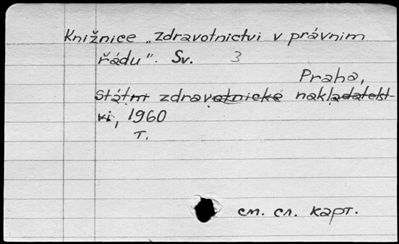 Knižnice „zdravotnictvi v právnim
řádu". Sv. 3
Praha,
Státni zdravotnické nakladatelst
vi, 1960
T.
см. сл. карт.